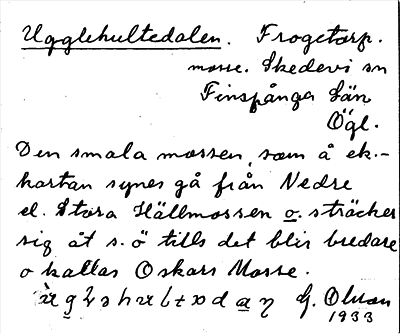 Ugglehultedalen. Frogetorp.
mosse. Skedevi sn
Finspånga län
Ögl.
Den smala mossen, som å ek.-
kartan synes gå från Nedre
el. Stora Hällmossen o. sträcker
sig åt s. ö tills det blir bredare
o kallas Oskars Mosse.
G. Olson
1933